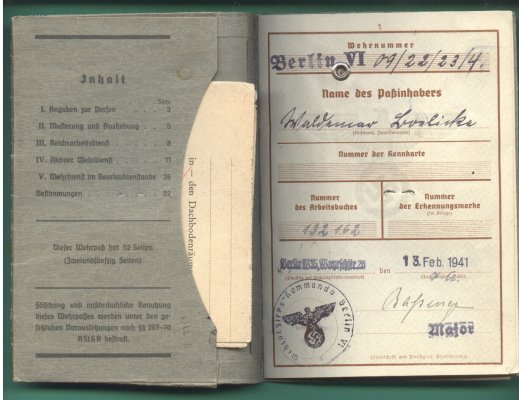 Inhalt
Seite
I. Angaben zur Person . . 3
II. Musterung und Aushebung . 5
III. Reichsarbeitsdienst . . 8
IV. Aktiver Wehrdienst . . 11
V. Wehrdienst im Beurlaubtenstande 35
Bestimmungen . . . . 52
Dieser Wehrpaß hat 52 Seiten
(Zweiundfünfzig Seiten)
Fälschung und mißbräuchliche Benutzung
dieses Wehrpasses werden unter den ge-
setzlichen Voraussetzungen nach §§ 267-70
RStGB bestraft.
in — den Dachbodenräum
1
Wehrnummer
Berlin VI 09/22/23/4.
Name des Paßinhabers
Waldemar
Nummer der Kennkarte
Nummer
des Arbeitsbuches
132 162
Nummer
der Erkennungsmarke
den 13. Feb. 1941
Major
Wehrbezirks-Kommando Berlin VI